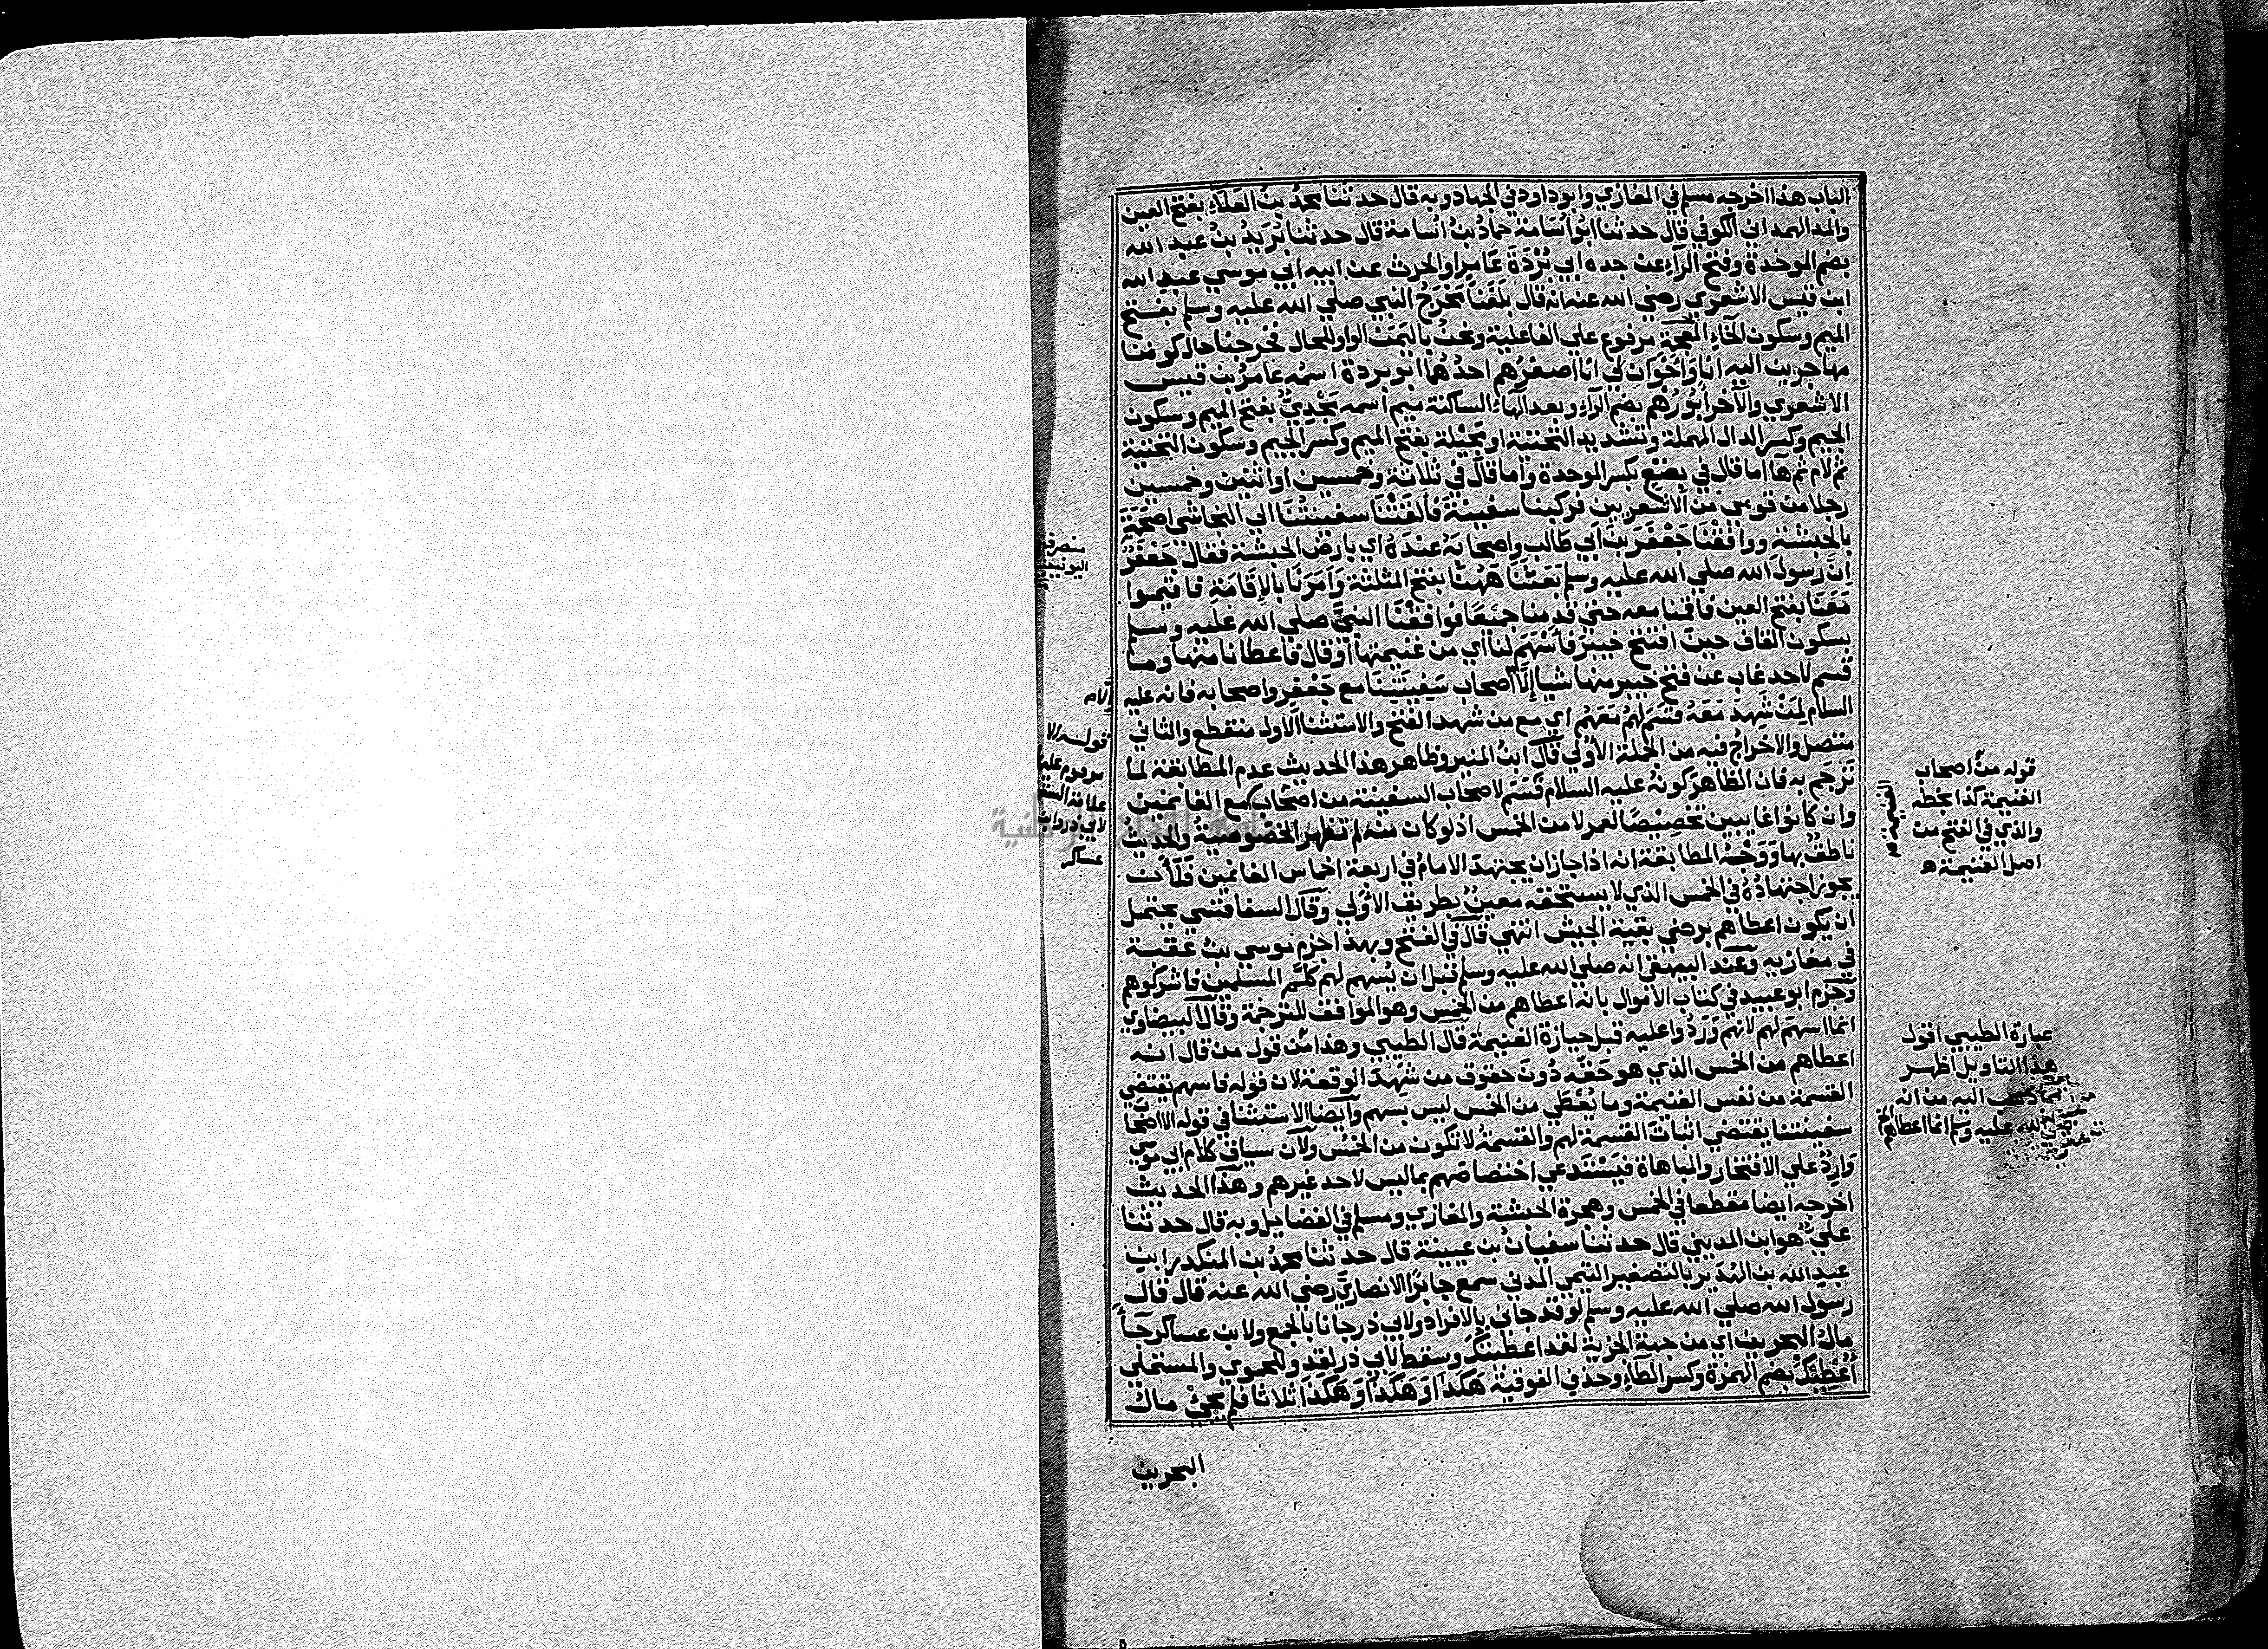 الباب هذا اخرجه مسلم في المغازي وابو داود في الجهاد وبه قال حدثنا محمد بن العلاء بفتح العين
والمد الهمداني الكوفي قال حدثنا ابو اسامة حماد بن اسامة قال حدثنا بريد بن عبد الله
بضم الموحدة وفتح الراء عن جده ابي بُرْدَة عامرا والحرث عن ابيه ابي موسي عبد الله
ابن قيس الاشعري رضي الله عنه انه قال بلغنا مَخرَجُ النبي صلي الله عليه وسلم بفتح
الميم وسكون الخاء المعجمة مرفوع علي الفاعلية ونحن باليمن الواو للحال فخرجنا حال كوننا
مهاجرين اليه انا وَاَخَوَان لي انا اصغرُهم احدُهُما ابو بردة اسمه عامرُ بن قيس
الاشعري والآخر ابورُهم بضم الراء وبعد الهاء الساكنة ميم اسمه مَجْدِيٌّ بفتح الميم وسكون
الجيم وكسر الدال المهملة وتشديد التحتية او مَجِيْلة بفتح الميم وكسر الجيم وسكون التحتية
ثم لام ثم هآ اما قال في بِضْعٍ بكسر الموحدة وَاما قال في ثلاثة وخمسين او اثنين وخمسين
رجلا من قومي من الاشعريين فركبنا سفينة فألقَتْنَا سفينتُنَا الي النجاشي اصحمة
بالحبشة ووافقْنَا جَعْفَرَ بن أبي طالب واصحابَهُ عندهُ اي بارض الحبشة فقال جعفر
اِنَّ رسولَ الله صلي الله عليه وسلم بَعَثَنَا هَهُنا بفتح المثلثة وَاَمَرَنَا بالإِقَامَةِ فاقيموا
مَعَنَا بفتح العين فاقمنا معه حتي قدمنا جميعًا فوافقْنَا النبيَّ صلي الله عليه وسلم
بسكون القاف حينَ افتتح خيبرَ فأَسْهَمَ لنا اي من غنيمتها أوْ قال فاعطانا منها وما
قسم لاحد غاب عن فتح خيبر منها شيا إلاَّ اصحاب سَفِينَتِنَا مع جَعْفَرٍ واصحابه فانه عليه
السلام لِمَنْ شَهِدَ مَعَهُ قَسَمَ لَهُم مَعَهُم اي مع من شهد الفتح والاستثنا الاول منقطع والثاني
متصل والاخراج فيه من الجملة الأولي قال ابن المنير وظاهر هذا الحديث عدم المطابقة لما
تَرْجَمَ به فان الظاهر كونهُ عليه السلام قَسَمَ لاصحاب السفينة من اصحاب مع الغانمين
وان كانوا غايبين تخصِيصًا لهم لا من الخمس اذ لو كان منه لم تظهر الخصوصية والحديث
ناطقٌ بها وَوَجْهُ المطابقة انه اذا جاز ان يجتهدَ الامامُ في اربعة اخماس الغانمين فَلأَن
يجوز اجتهادُهُ في الخمس الذي لا يستحقه معينٌ بطريق الأوْلي وقال السفاقسي يحتمل
ان يكون اعطاهم برضي بقية الجيش انتهي قال في الفتح وبهذا جزم موسي بن عقبة
في مغازيه وعند البيهقي انه صلي الله عليه وسلم قبل ان يُسهم لهم كلَّمَ المسلمين فاشركوهم
وَجَزَم ابو عبيد في كتاب الاموال بانه اعطاهم من الخمس وهو الموافق للترجمة وقال البيضاوي
انما اسهم لهم لانهم وَرَدُوا عليه قبل حيازة الغنيمة قال الطيبي وهذا من قول من قال انه
اعطاهم من الخمس الذي هو حَقّه دُونَ حقوق من شهدَ الوقعة لان قوله فاسهم يقتضي
القسمة من نفس الغنيمة وما يُعْطَي من الخمس ليس بسهم وأيضا الاستثنا في قوله الا اصحاب
سفينتنا يقتضي اثباتَ القسمة لهم والقسمةُ لا تكون من الخُمُسِ ولأن سياق كلام ابي موسي
وَارِدٌ علي الافتخار والمباهاة فيَسْتَدعي اختصاصَهم بما ليس لاحد غيرهم وهذا الحديث
اخرجه ايضا مقطعا في الخمس وهجرة الحبشة والمغازي ومسلم في الفضايل وبه قال حدثنا
عليٌّ هو ابن المديني قال حدثنا سفيانُ بن عيينة قال حدثنا محمدُ بن المنكدر ابن
عبد الله بن الهُدَير بالتصغير التيمي المدني سمع جابرًا الانصاريَّ رضي الله عنه قال قال
رسول الله صلي الله عليه وسلم لو قد جاني بالافراد ولابي ذر جانا بالجمع ولابن عساكر جَآءَ
مال البحرين اي من جهة الجزية لقد اعطيتُكَ وسقط لابي ذر لقد وللحموي والمستملي
اُعْطِيْكَ بضم الهمزة وكسر الطاء وحذف الفوقية هَكَذَا وَهَكَذَا وَهَكَذَا ثلاثا فلم يجئ مال
البحرين
قوله من اصحاب
الغنيمة كذا بخطه
والذي في الفتح من
اصل الغنيمة ه
عبارة الطيبي اقول
هذا التاويل اظهر
مما ذهب اليه من انه
صلي الله عليه وسلم انما اعطاهم
قوله الا
مرقوم عليها
علامة السقط
لابي ذر وابن
عساكر